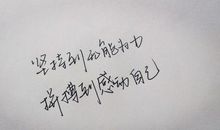 坚持到无能为力
拼搏到感动自己